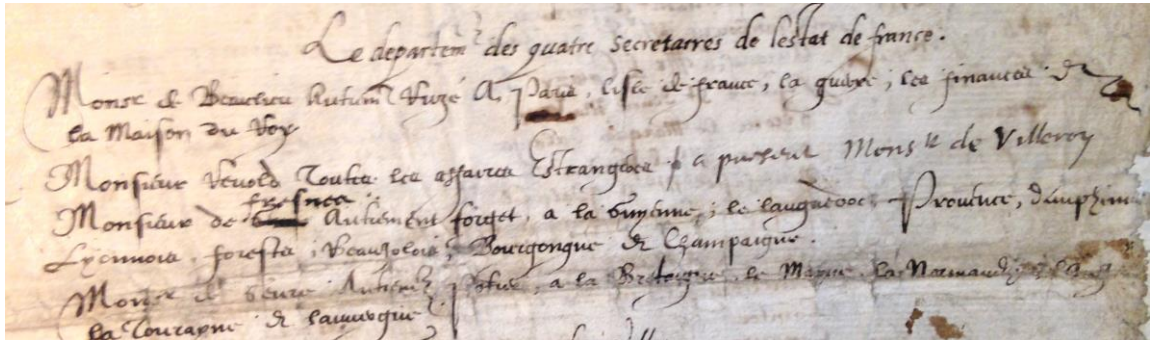 Le departem.t des quatre Secretaires de lestat de france.
Monsr de Beaulieu Autrem.t Ruzé A Paris, lisle de france, la guerre, les finances &
la Maison du Roy
Monsieur Revold Toutes les affaires Estrangeres / a present Mons.r de Villeroy
fresnes
Monsieur de Autrement forget, a la Guyenne, le languedoc, Provence, dauphine
Lyonnois, forestz, Beaujolois, Bourgongne & Champaigne.
Monsr de Seure Autrem.t Potier, a la Bretaigne, le Mayne, la Normandye
la Tourayne & lauvergne